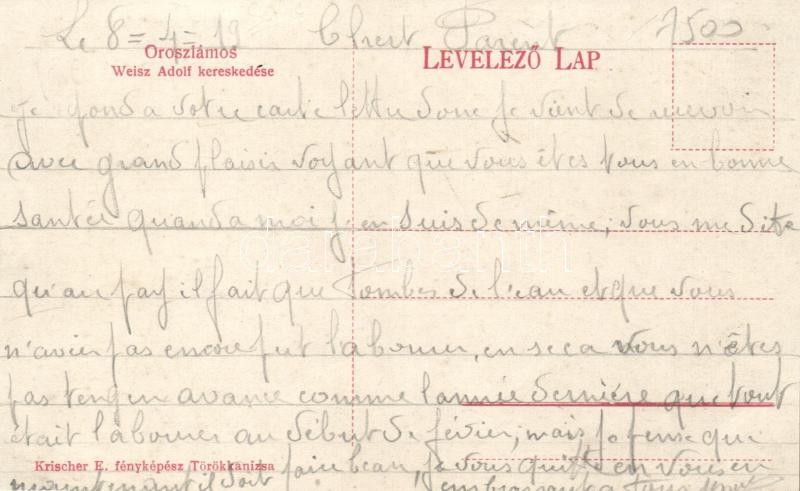 Le 8=4=19 Chert Parent 1500
Oroszlámos
Weisz Adolf kereskedése
LEVELEZŐ LAP
Je répond a votre carte lettre donc je vient de recevoir
avec grand plaisir voyant que vous êtes tous en bonne
santée quand a moi j'en suis de même, vous me dite
qu'au pay il fait que tombes de l'eau et que vous
n'avier pas encore put labourer, en se ca vous n'êtes
pas ten gen avance comme l'année dernière que tout
était labourer au début de février, mais je pense que
Krischer E. fényképész Törökkanizsa
maintenant il doit faire beau, je vous quitte en vous en
embrassant a tous